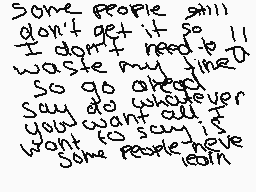 Some people still
don't get it so
I don't need to
waste my time
so go ahead
say do whatever
you want all I
want to say is
some people neve
learn